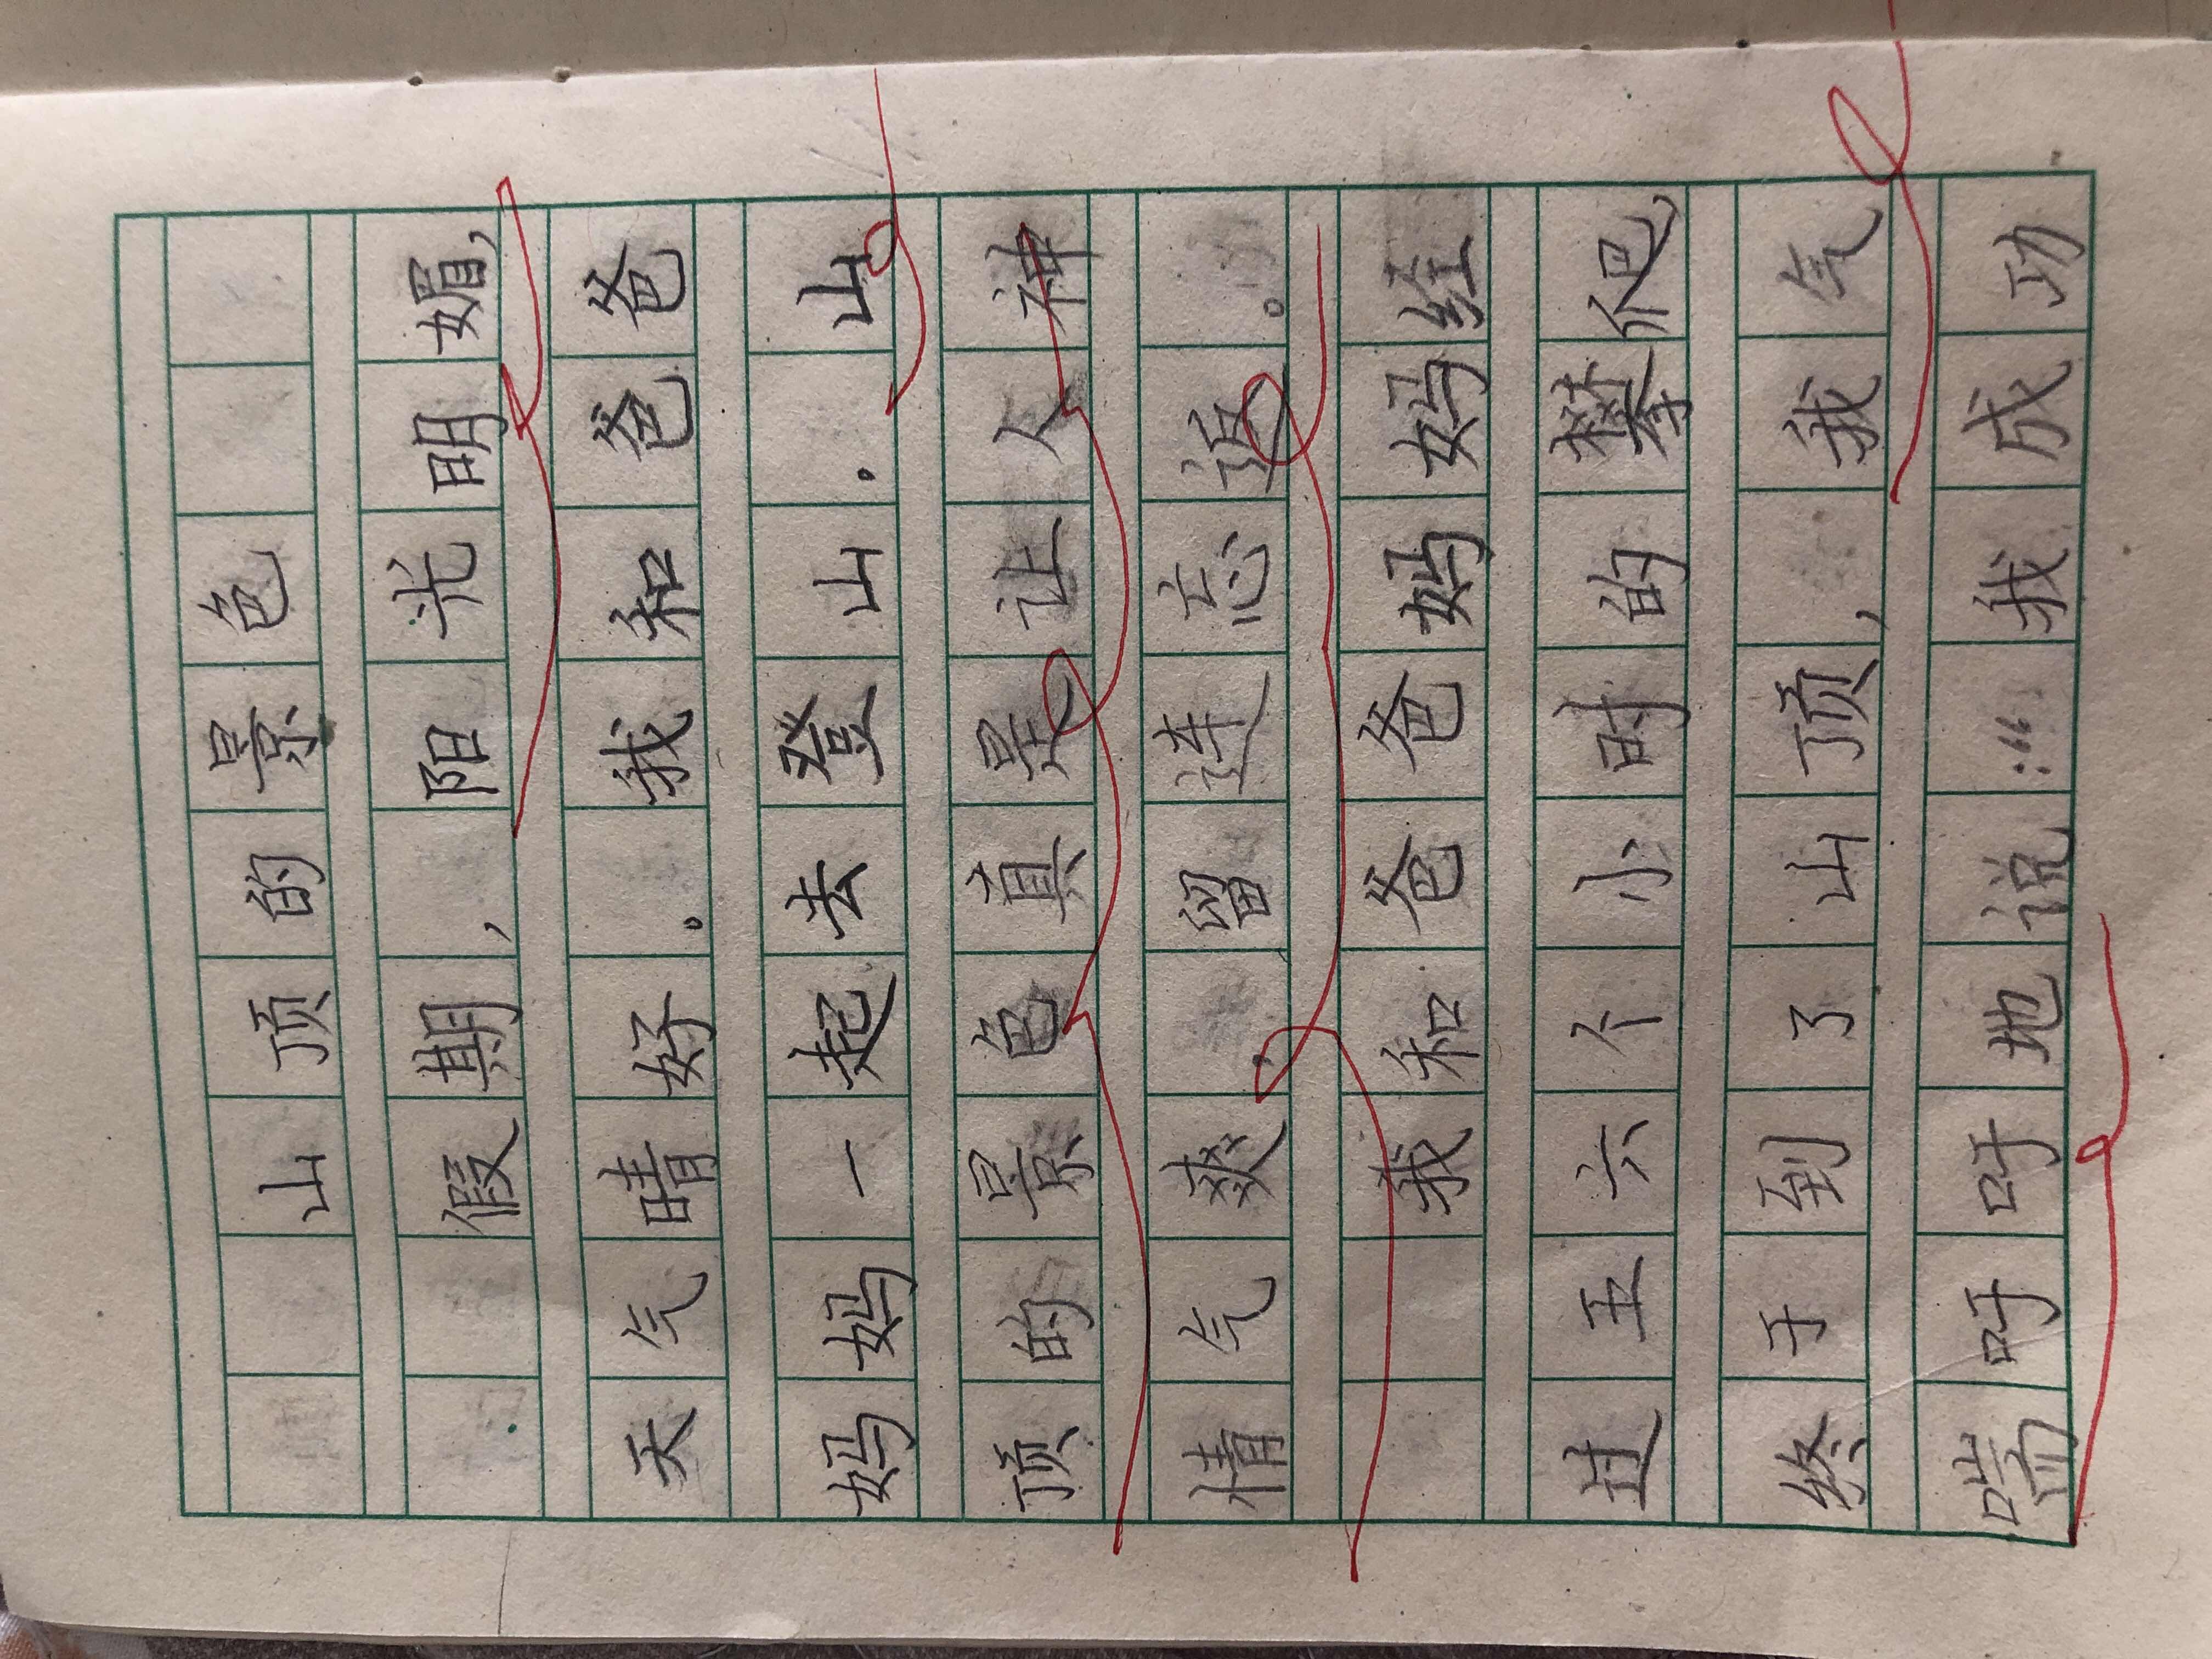 山顶的景色
假期，阳光明媚，
天气晴好。我和爸爸
妈妈一起去登山。山
顶的景色真是让人神
情气爽，留连忘返。
我和爸爸妈妈经
过五六个小时的攀爬，
终于到了山顶，我气
喘吁吁地说：“我成功